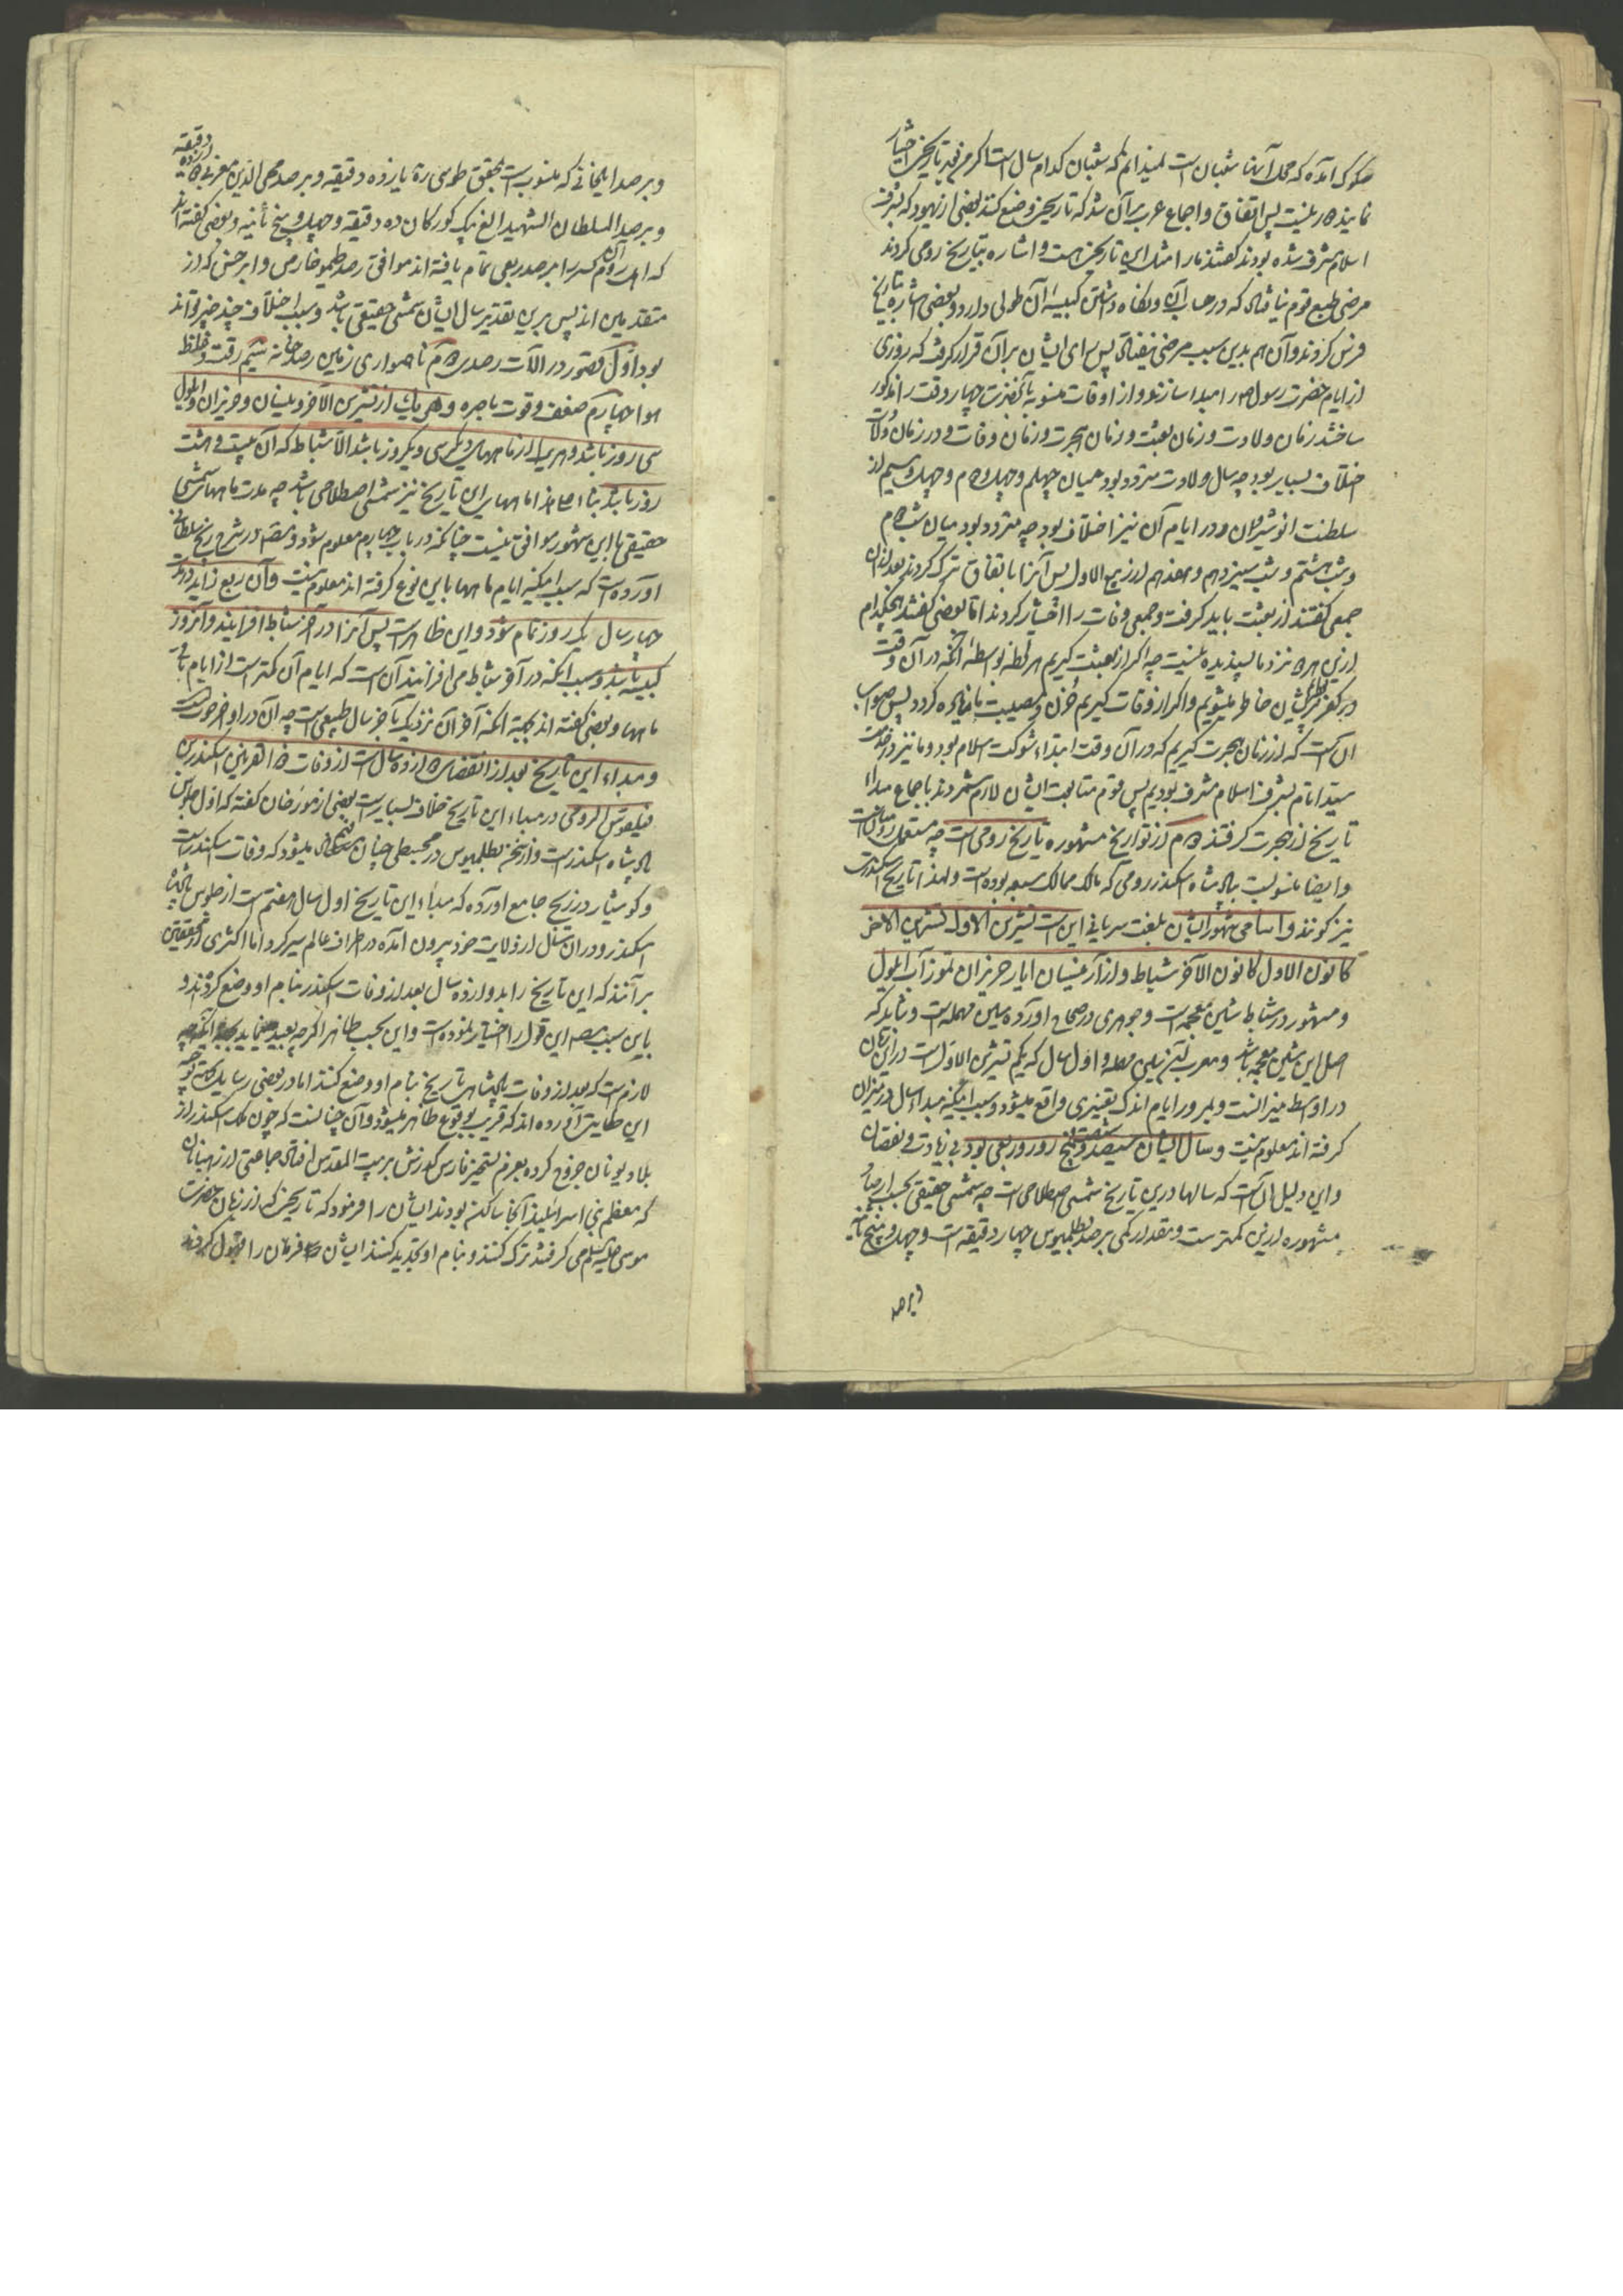 صکوک آمده که محل آنها شعبان است نمیدانم که شعبان کدام سال است اکرم فرمود تاریخی اختیار
نمایند چاره نیست پس اتفاق و اجماع عرب بر آن شد که تاریخی وضع کنند بعضی از یهود که بشرف
اسلام مشرف شده بودند گفتند ما را مثل این تاریخی هست و اشاره بتاریخ رومی کردند
مرضی طبع قوم نیافتاد که در حساب آن و نگاه داشتن کبیسهٔ آن طولی دارد و بعضی اشاره بتاریخ
فرس کردند و آن هم بدین سبب مرضی نیفتاد پس رای ایشان بر آن قرار گرفت که روزی
از ایام حضرت رسول را مبدا سازند و از اوقات منسوبه بآنحضرت چهار وقت را مذکور
ساختند زمان ولادت و زمان بعثت و زمان هجرت و زمان وفات و در زمان ولادت
اختلاف بسیار بود چه سال ولادت متردد بود میان چهلم و چهل و دوم و چهل و سیم از
سلطنت انوشیروان و در ایام آن نیز اختلاف بود چه متردد بود میان شب دوم
و شب هشتم و شب سیزدهم و هفدهم از ربیع الاول پس آنرا باتفاق ترک کردند بعد از آن
جمعی گفتند از بعثت باید گرفت و جمعی وفات را اختیار کردند اما بعضی گفتند هیچکدام
ازین هر دو نزد ما پسندیده نیست چه اگر از بعثت گیریم هر لحظه بواسطهٔ آنکه در آن وقت
در کفر بودیم پریشان خاطر میشویم و اگر از وفات گیریم حزن و مصیبت ما زیاده گردد پس صواب
آن است که از زمان هجرت گیریم که در آن وقت ابتداء شوکت اسلام بود و ما نیز در خدمت
سید انام بشرف اسلام مشرف بودیم پس قوم متابعت ایشان لازم شمردند باجماع مبداء
تاریخ از هجرت گرفتند دوم از تواریخ مشهوره تاریخ رومی است چه مستعمل رومیان است
و ایضا منسوبست بپادشاه اسکندر رومی که مالک ممالک سبعه بوده است و لهذا تاریخ اسکندری
نیز گویند و اسامی شهور ایشان بلغت سریانی این است تشرین الاول تشرین الآخر
کانون الاول کانون الآخر شباط و آذار نیسان ایار حزیران تموز آب ایلول
و مشهور در شباط شین معجمه است و جوهری در صحاح آورده بسین مهمله است و شاید که
اصل این بشین معجمه باشد و معرب آن بسین مهمله و اول سال که یکم تشرین الاول است در این زمان
در اواسط میزانست و بمرور ایام اندک تغییری واقع میشود و سبب اینکه مبداء سال در میزان
گرفته اند معلوم نیست و سال ایشان سیصد و شصت و پنج روز و ربعی بود بی زیادت و نقصان
و این دلیل آن است که سالها درین تاریخ شمسی اصطلاحی است چه شمسی حقیقی بحسب ارصاد
مشهوره ازین کمترست و مقدار کمی برصد بطلمیوس چهار دقیقه است و چهل و پنج ثانیه
و برصد
و برصد ایلخانی که منسوب است بمحقق طوسی ره یازده دقیقه و برصد محی الدین مغربی دوازده دقیقه
و برصد السلطان الشهید الغ بیک کورکان ده دقیقه و چهل و پنج ثانیه و بعضی گفته اند
که اهل روم آن کسر را برصد ربعی تمام یافته اند موافق رصد طیموخارس و ابرخس که از
متقدمین اند پس برین تقدیر سال ایشان شمسی حقیقی باشد و سبب اختلاف چند چیز تواند
بود اول قصور در آلات رصدی دوم ناهمواری زمین رصدخانه سیم رقت و غلظ
هوا چهارم ضعف و قوت باصره و هر یک از تشرین الآخر و نیسان و حزیران و ایلول
سی روز باشد و هر یک از ماههای دیگر سی و یکروز باشد الا شباط که آن بیست و هشت
روز باشد بناء علی هذا ماههای این تاریخ نیز شمسی اصطلاحی باشد چه مدت ماههای شمسی
حقیقی با این شهور موافق نیست چنانکه در باب چهارم معلوم شود و مصنف در شرح زیج سلطانی
آورده است که سبب اینکه ایام ماهها باین نوع گرفته اند معلوم نیست و آن ربع زاید در مدت
چهار سال یک روز تمام شود و این ظاهر است پس آنرا در آخر شباط افزایند و آنروز
کبیسه باشد و سبب اینکه در آخر شباط می افزایند آن است که ایام آن کمترست از ایام باقی
ماهها و بعضی گفته اند بجهة آنکه آخر آن نزدیک بآخر سال طبیعی است چه آن در اواخر حوتست
و مبداء این تاریخ بعد از انقضاء دوازده سال است از وفات ذو القرنین اسکندر بن
فیلقوس الرومی در مبداء این تاریخ خلاف بسیارست بعضی از مورخان گفته که اول جلوس
پادشاه اسکندرست و از سخن بطلمیوس در مجسطی چنان فهم میشود که وفات اسکندرست
و کوشیار در زیج جامع آورده که مبداء این تاریخ اول سال هفتم است از جلوس پادشاه
اسکندر و در آن سال از ولایت خود بیرون آمده در اطراف عالم سیر کرد اما اکثری از محققین
برآنند که این تاریخ را بدوازده سال بعد از وفات اسکندر بنام او وضع کردند و
باین سبب مصنف این قول را اختیار نموده است و این بحسب ظاهر اگرچه بعید مینماید چه
لازم است که بعد از وفات پادشاهی تاریخ بنام او وضع کنند اما در بعضی رسایل
این حکایت آورده اند که قریب بوقوع ظاهر میشود و آن چنانست که چون ملک اسکندر از
بلاد یونان خروج کرده بعزم تسخیر فارس گذرش بر بیت المقدس افتاد جماعتی از رهبانان
که معظم بنی اسرائیلیند آنجا ساکن بودند ایشان را فرمود که تاریخی که از زمان حضرت
موسی علیه السلم می گرفتند ترک کنند و بنام او تجدید کنند ایشان فرمان را قبول کردند